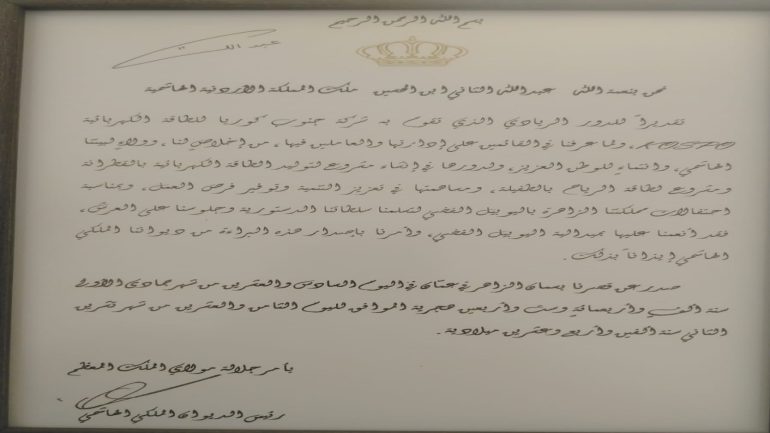 بسم الله الرحمن الرحيم
عبد الله
نحن بنعمة الله عبدالله الثاني ابن الحسين ملك المملكة الأردنية الهاشمية
تقديراً للدور الريادي الذي تقوم به شركة جنوب كوريا للطاقة الكهربائية
KOSPO، ولما عرفنا في القائمين على إدارتها والعاملين فيها، من إخلاصٍ لنا، وولاءٍ لبيتنا
الهاشمي، وانتماءٍ للوطن العزيز، ولدورها في إنشاء مشروع لتوليد الطاقة الكهربائية بالقطرانة
ومشروع لطاقة الرياح بالطفيلة، ومساهمتها في تعزيز التنمية وتوفير فرص العمل، وبمناسبة
احتفالات مملكتنا الزاهرة باليوبيل الفضي لتسلمنا سلطاتنا الدستورية وجلوسنا على العرش،
فقد أنعمنا عليها بميدالية اليوبيل الفضي، وأمرنا بإصدار هذه البراءة من ديواننا الملكي
الهاشمي إيذاناً بذلك.
صدر عن قصرنا بسمان الزاهر في عمّان في اليوم السادس والعشرين من شهر جمادى الأولى
سنة ألفٍ وأربعمائةٍ وستٍ وأربعين هجرية الموافق لليوم الثامن والعشرين من شهر تشرين
الثاني سنة ألفين وأربع وعشرين ميلادية.
بأمر جلالة مولاي الملك المعظم
رئيس الديوان الملكي الهاشمي